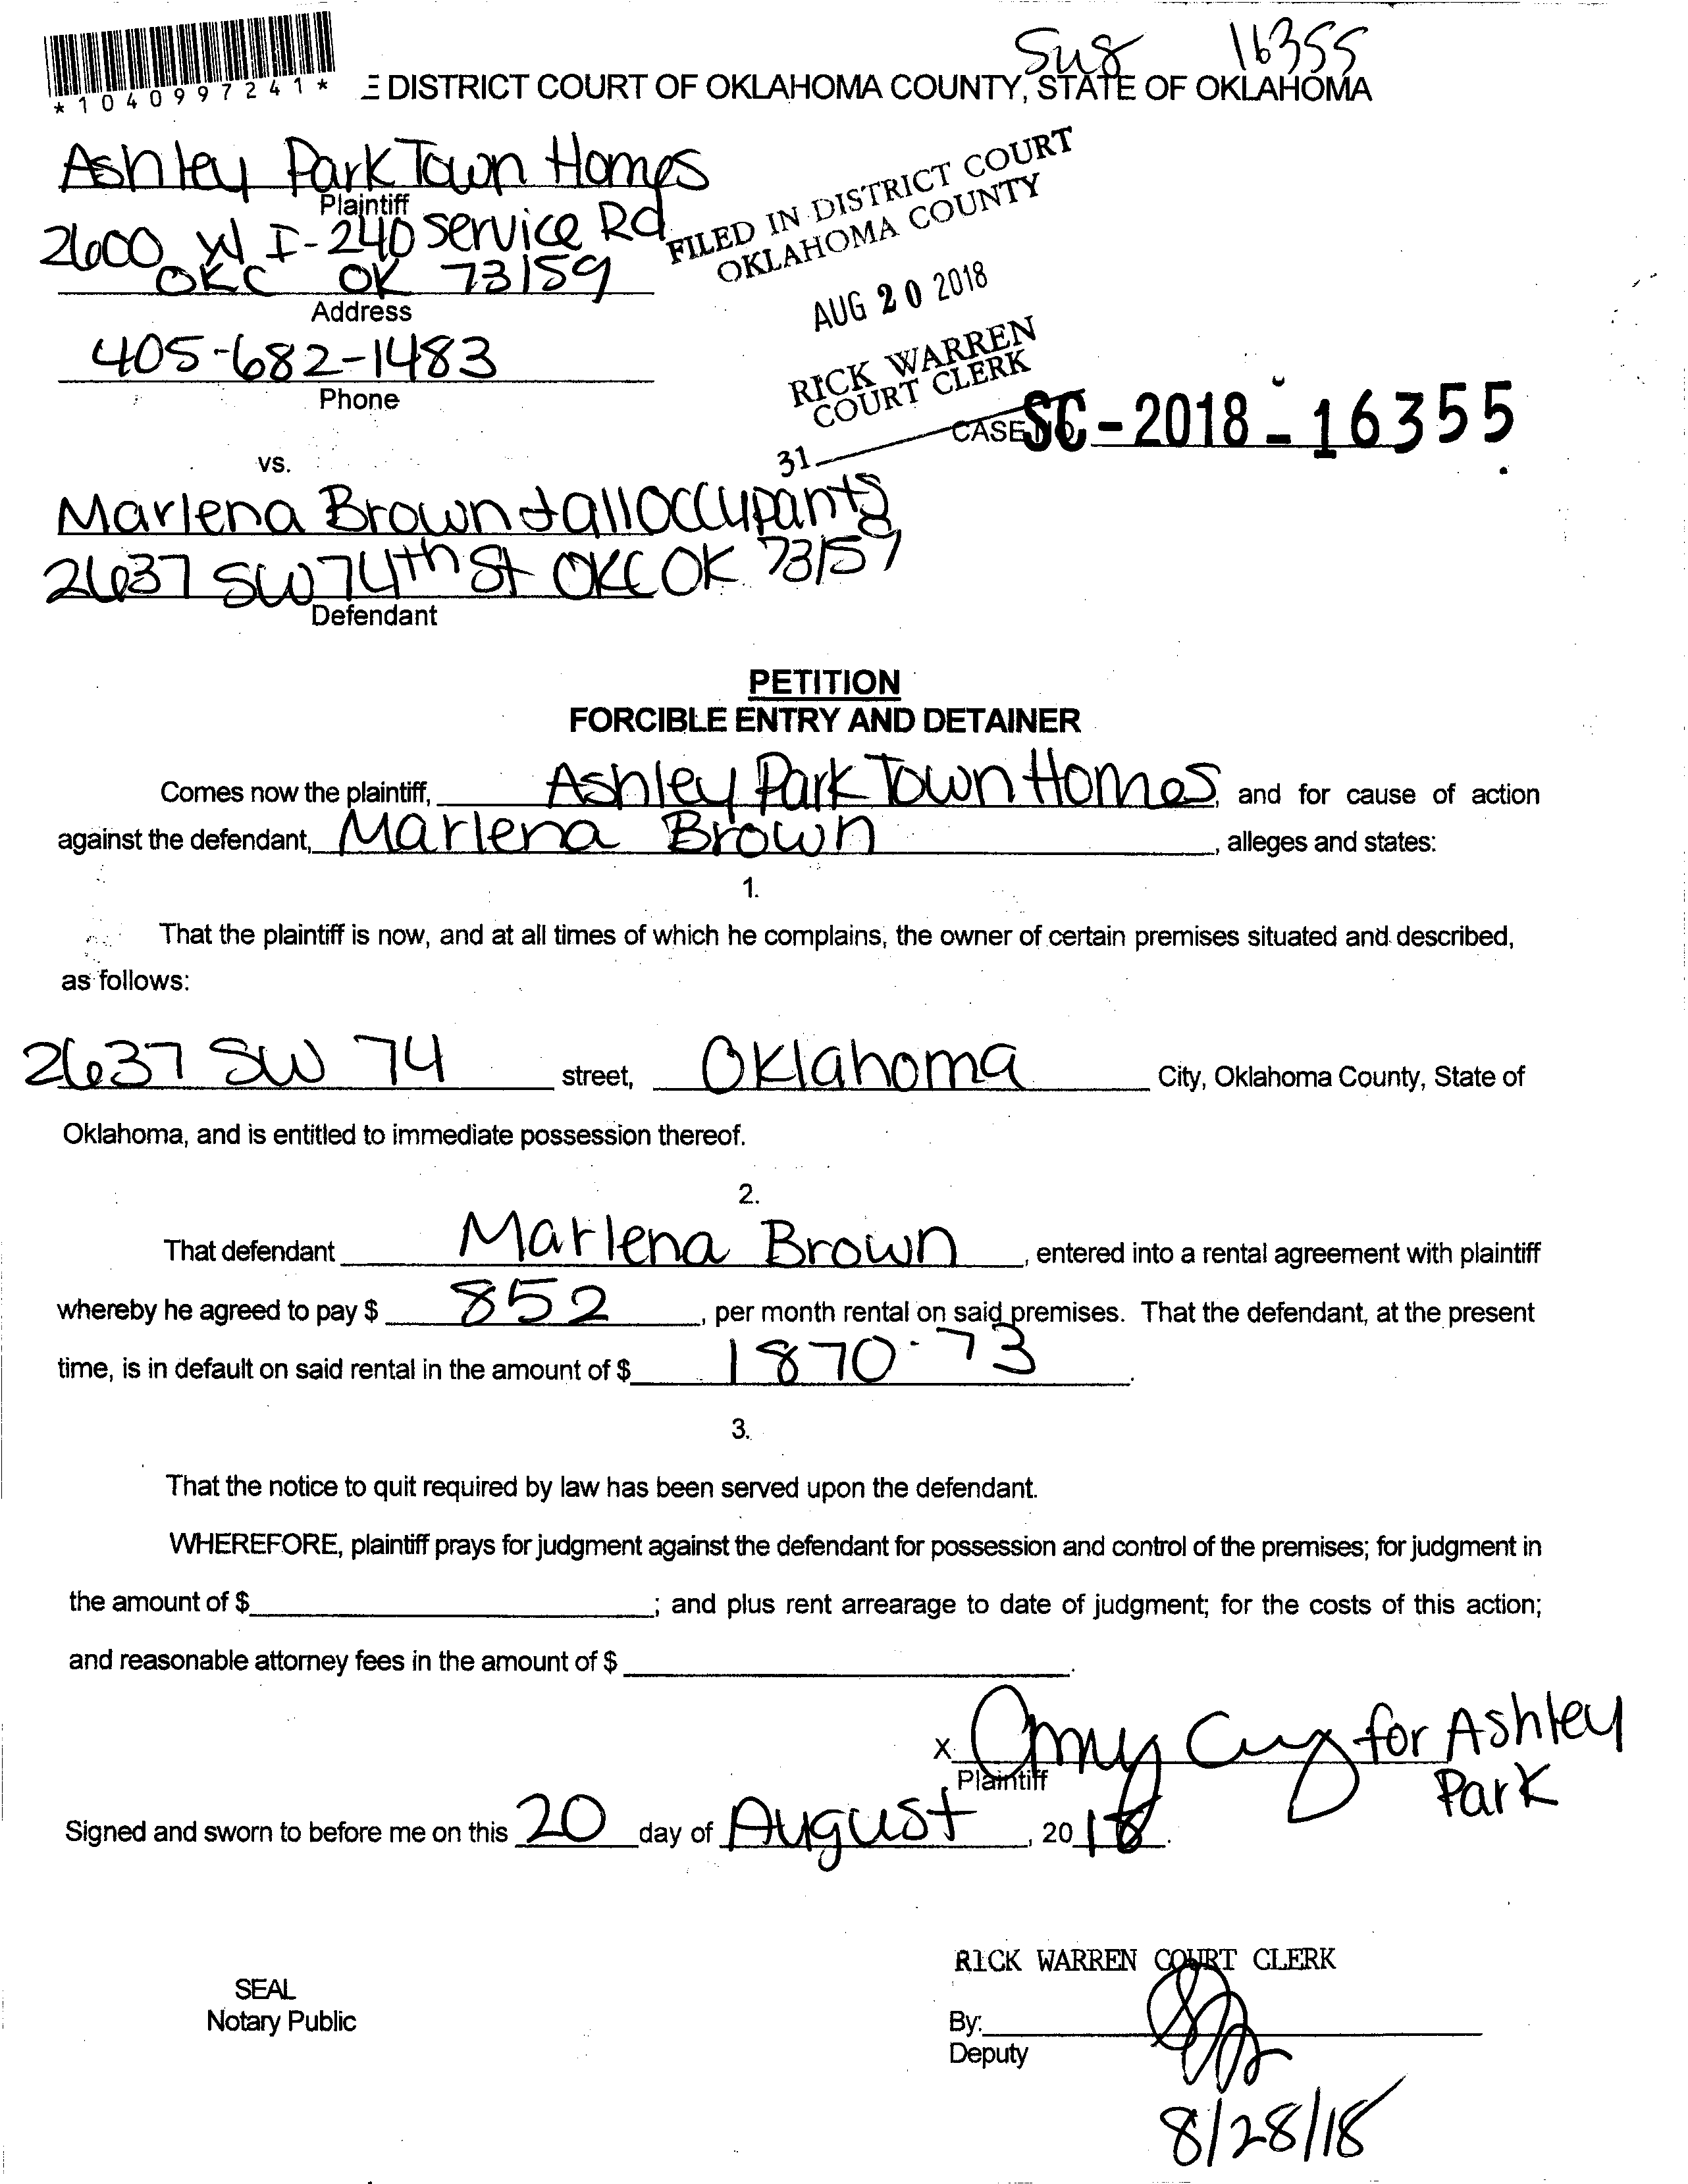 Su8 16355
*1040997241*
E DISTRICT COURT OF OKLAHOMA COUNTY, STATE OF OKLAHOMA
Ashley Park Town Homes
Plaintiff
2600 W I-240 service Rd
OKC OK 73159
Address
405-682-1483
Phone
FILED IN DISTRICT COURT
OKLAHOMA COUNTY
AUG 20 2018
RICK WARREN
COURT CLERK
31
CASE NO. SC-2018-16355
vs.
Marlena Brown + all occupants
2637 SW 74th St OKC OK 73159
Defendant
PETITION
FORCIBLE ENTRY AND DETAINER
Comes now the plaintiff, Ashley Park Town Homes, and for cause of action
against the defendant, Marlena Brown, alleges and states:
1.
That the plaintiff is now, and at all times of which he complains, the owner of certain premises situated and described,
as follows:
2637 SW 74 street, Oklahoma City, Oklahoma County, State of
Oklahoma, and is entitled to immediate possession thereof.
2.
That defendant Marlena Brown, entered into a rental agreement with plaintiff
whereby he agreed to pay $ 852, per month rental on said premises. That the defendant, at the present
time, is in default on said rental in the amount of $ 1870.73.
3.
That the notice to quit required by law has been served upon the defendant.
WHEREFORE, plaintiff prays for judgment against the defendant for possession and control of the premises; for judgment in
the amount of $ ; and plus rent arrearage to date of judgment; for the costs of this action;
and reasonable attorney fees in the amount of $ .
x Amy for Ashley
Park
Plaintiff
Signed and sworn to before me on this 20 day of August, 2018.
RICK WARREN COURT CLERK
SEAL
Notary Public
By:
Deputy
8/28/18